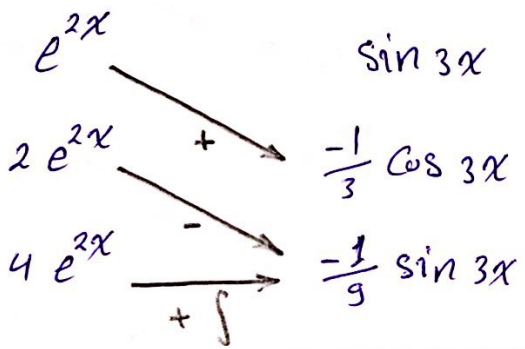 e^{2x} sin 3x
+
2 e^{2x} -1/3 Cos 3x
-
4 e^{2x} -1/9 sin 3x
+ ∫